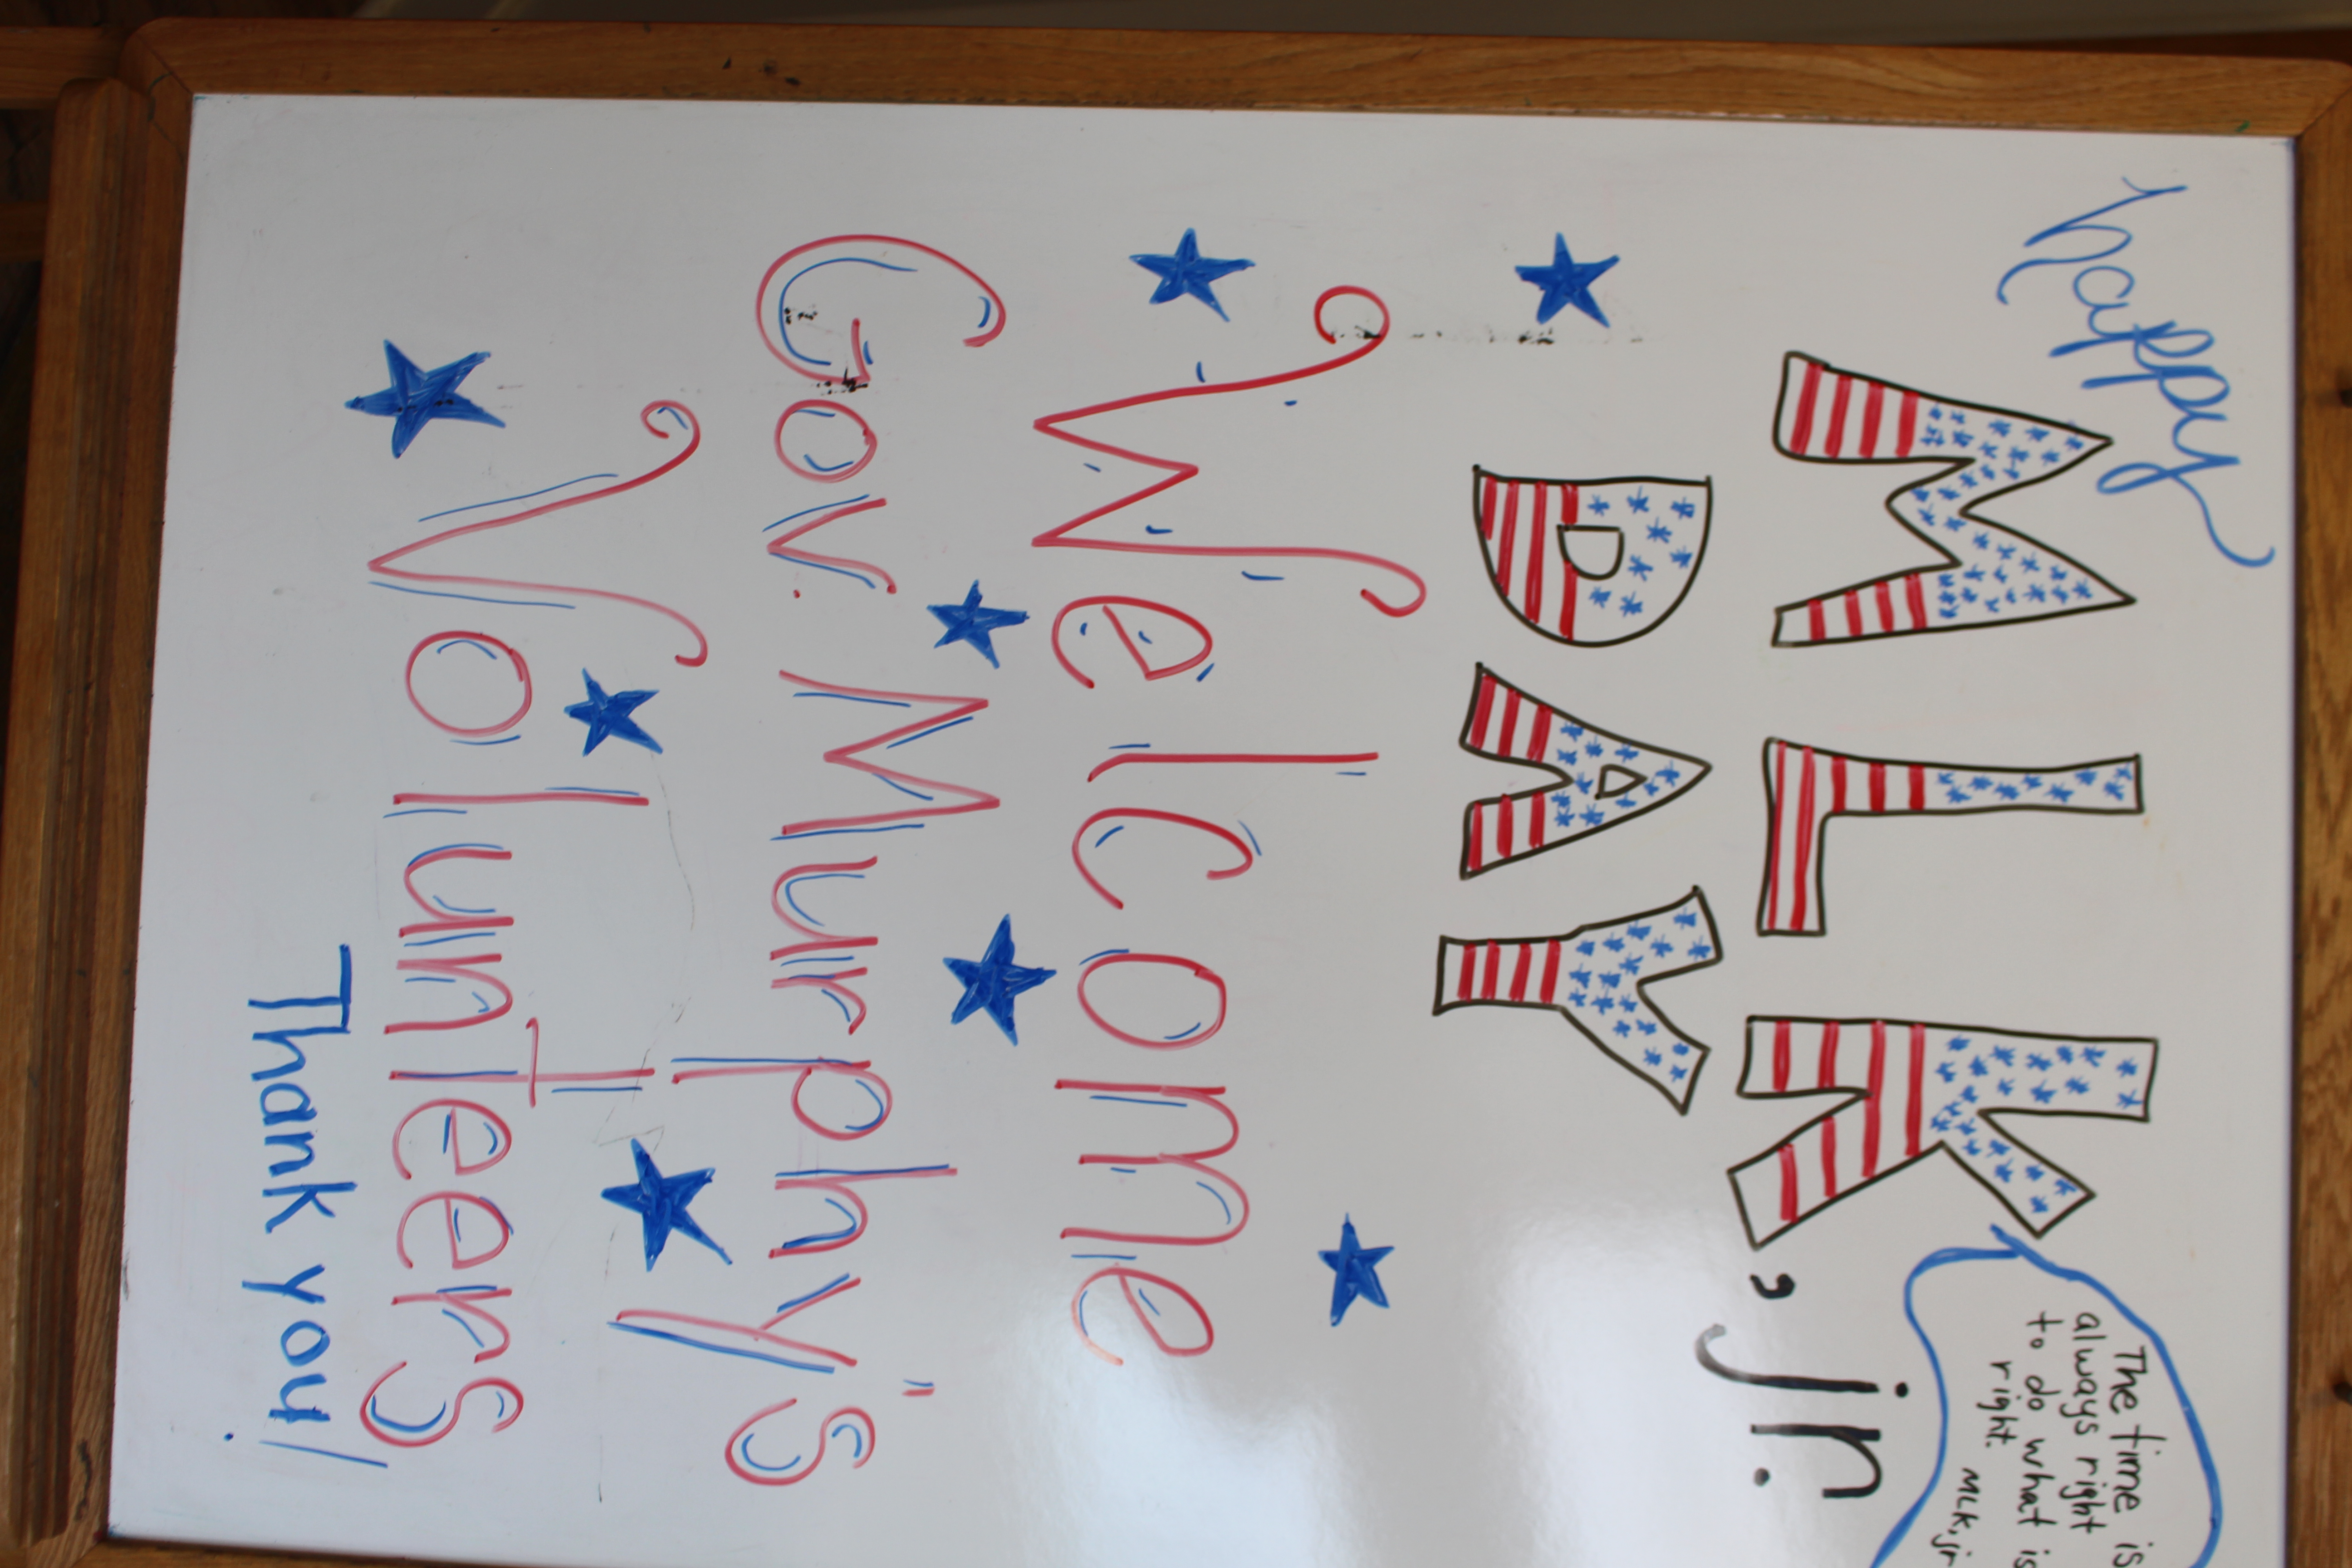 happy
MLK, jr.
DAY
The time is
always right
to do what is
right.
MLK, jr
Welcome
Gov. Murphy's
Volunteers
Thank you!